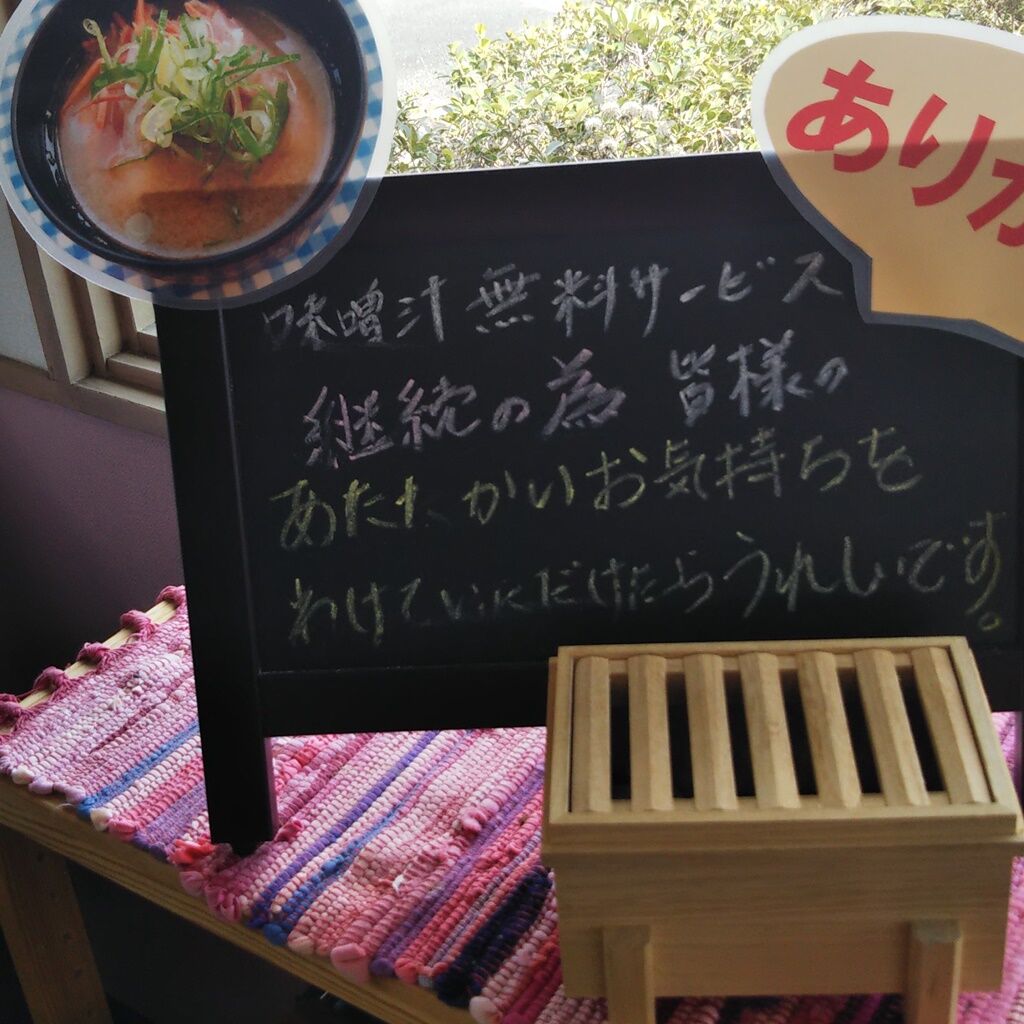 ありが
味噌汁無料サービス
継続の為 皆様の
あたたかいお気持ちを
わけていただけたらうれしいです。